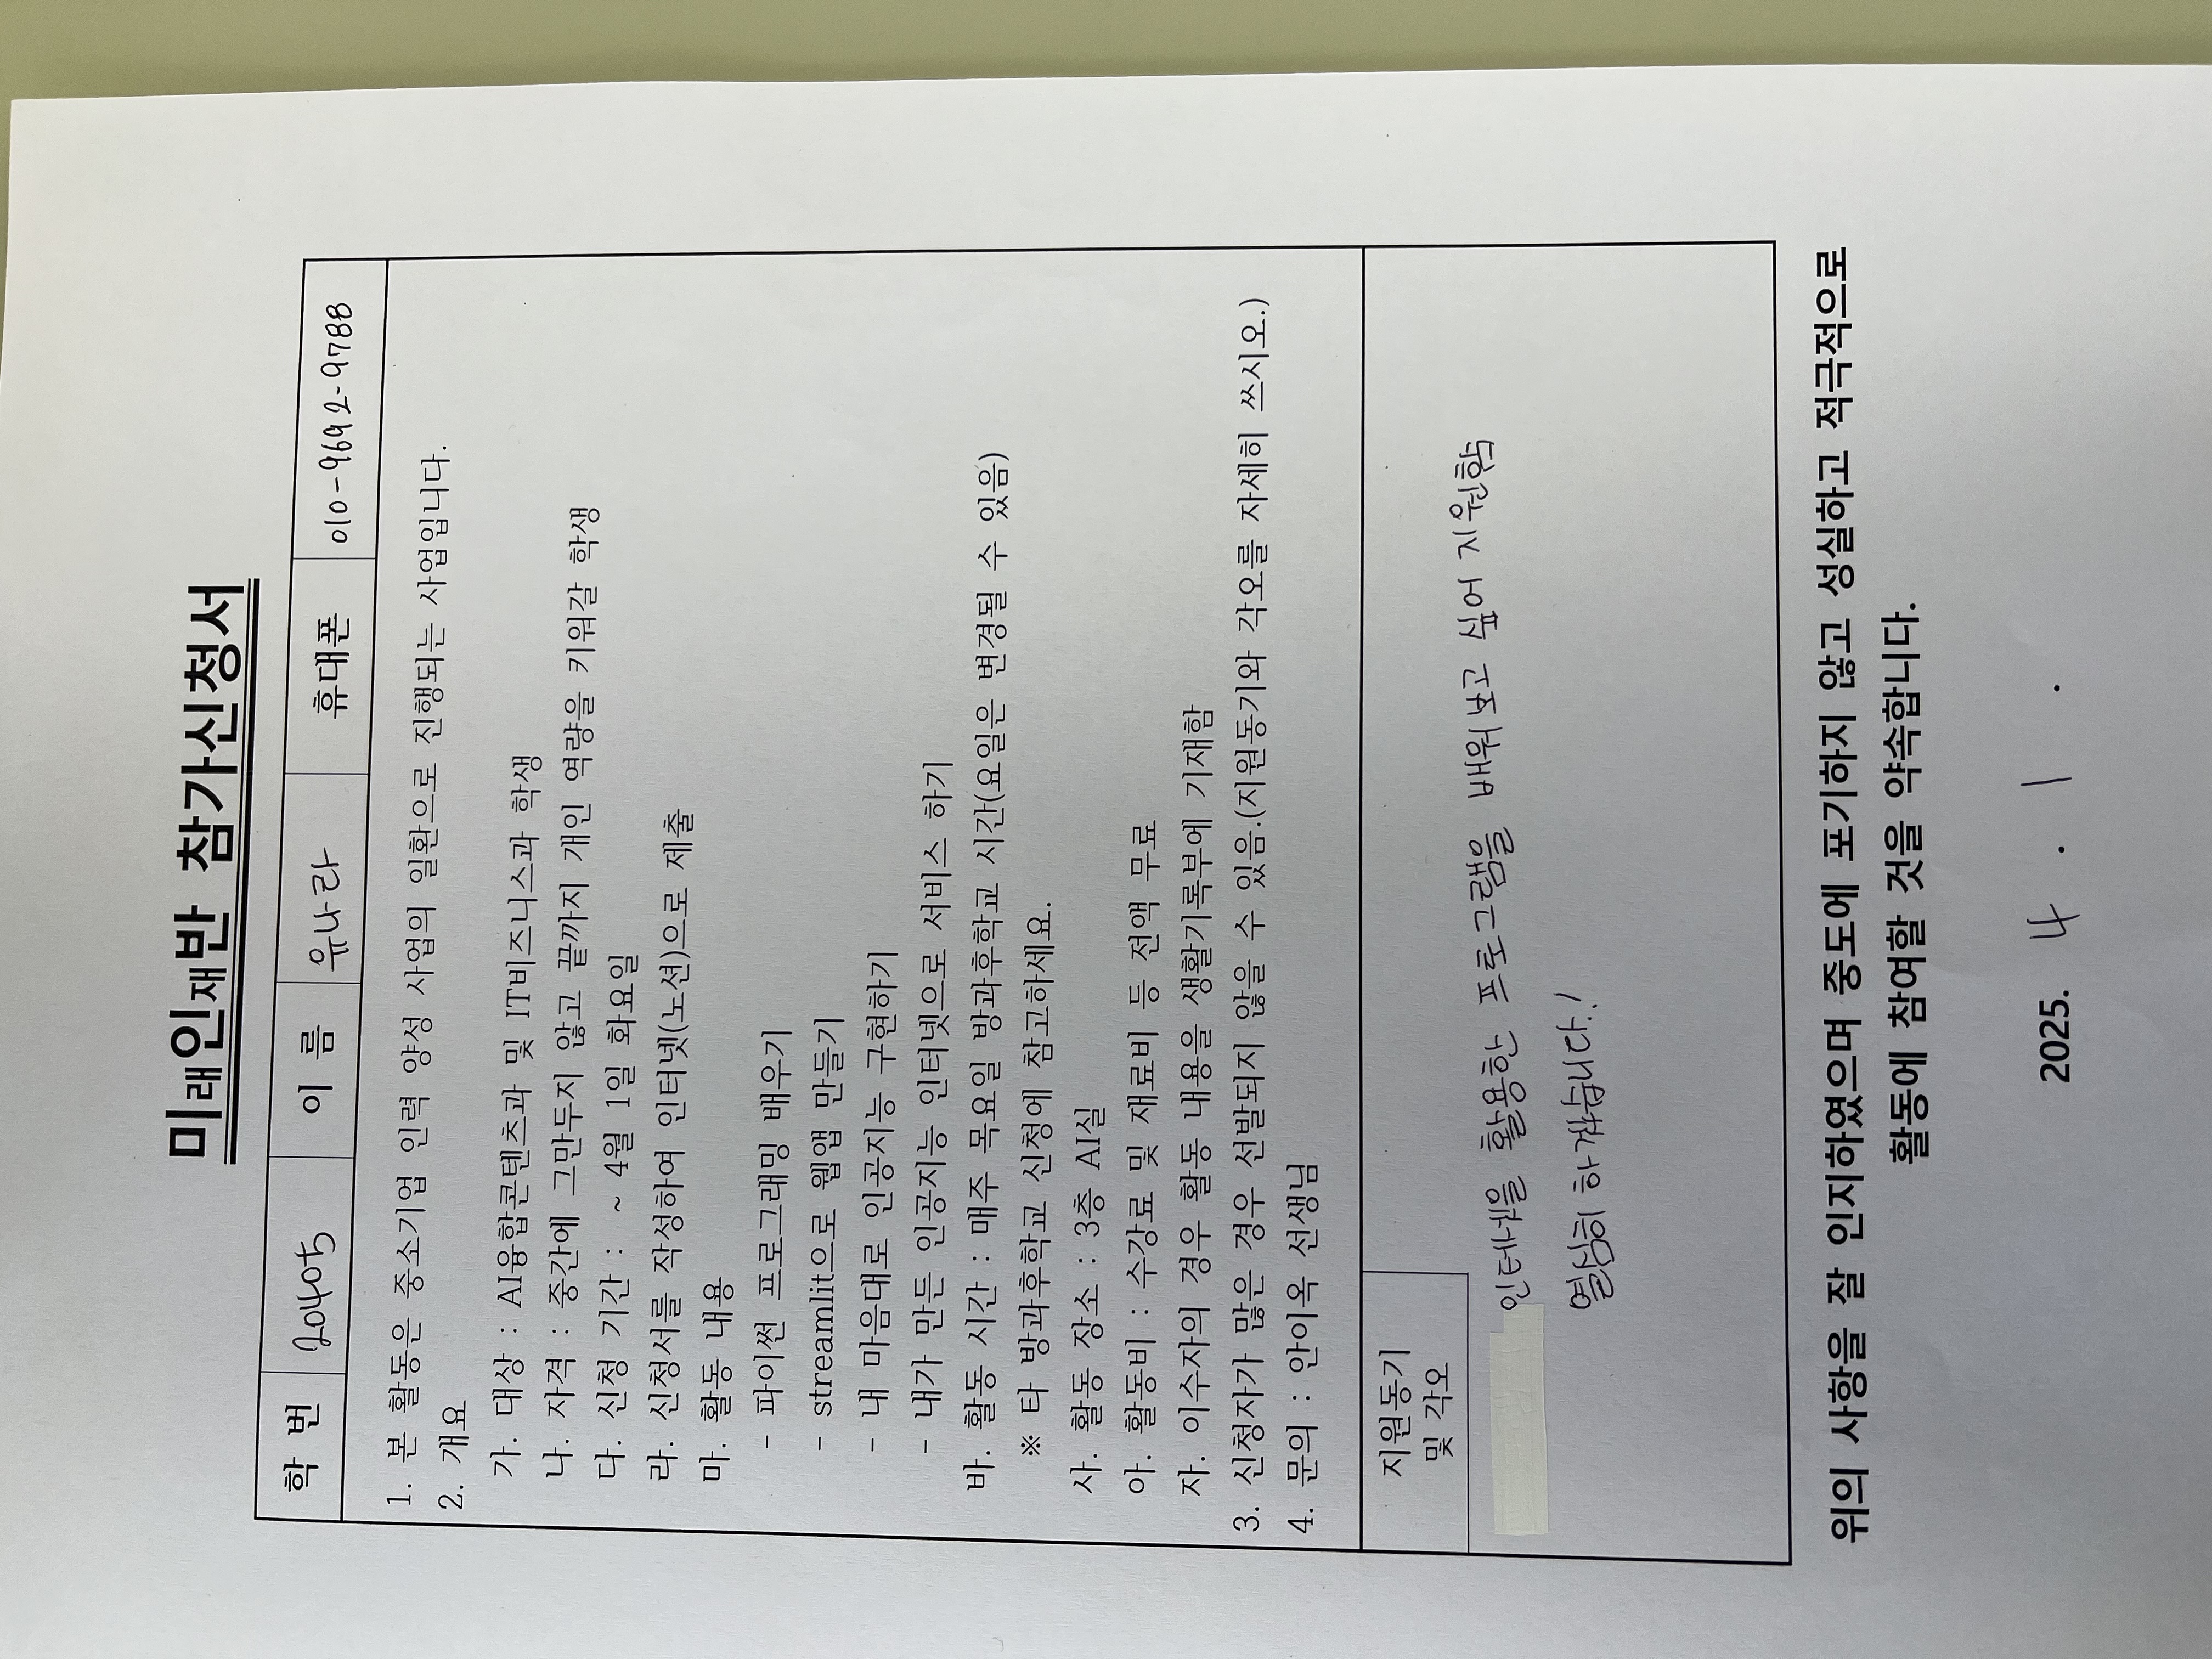 미래인재반 참가신청서
학 번 20405 이 름 유나라 휴대폰 010-9692-9788
1. 본 활동은 중소기업 인력 양성 사업의 일환으로 진행되는 사업입니다.
2. 개요
가. 대상 : AI융합콘텐츠과 및 IT비즈니스과 학생
나. 자격 : 중간에 그만두지 않고 끝까지 개인 역량을 키워갈 학생
다. 신청 기간 : ~ 4월 1일 화요일
라. 신청서를 작성하여 인터넷(노션)으로 제출
마. 활동 내용
- 파이썬 프로그래밍 배우기
- streamlit으로 웹앱 만들기
- 내 마음대로 인공지능 구현하기
- 내가 만든 인공지능 인터넷으로 서비스 하기
바. 활동 시간 : 매주 목요일 방과후학교 시간(요일은 변경될 수 있음)
※ 타 방과후학교 신청에 참고하세요.
사. 활동 장소 : 3층 AI실
아. 활동비 : 수강료 및 재료비 등 전액 무료
자. 이수자의 경우 활동 내용을 생활기록부에 기재함
3. 신청자가 많은 경우 선발되지 않을 수 있음.(지원동기와 각오를 자세히 쓰시오.)
4. 문의 : 안이옥 선생님
지원동기
및 각오
활용한 프로그램을 배워보고 싶어
열심히 하겠습니다.!
위의 사항을 잘 인지하였으며 중도에 포기하지 않고 성실하고 적극적으로
활동에 참여할 것을 약속합니다.
2025. 4 . 1 .